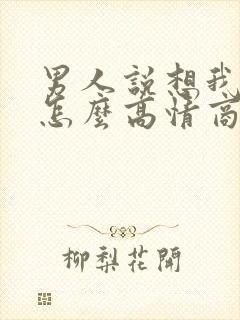 男人說想我
怎麼高情商
柳梨花開